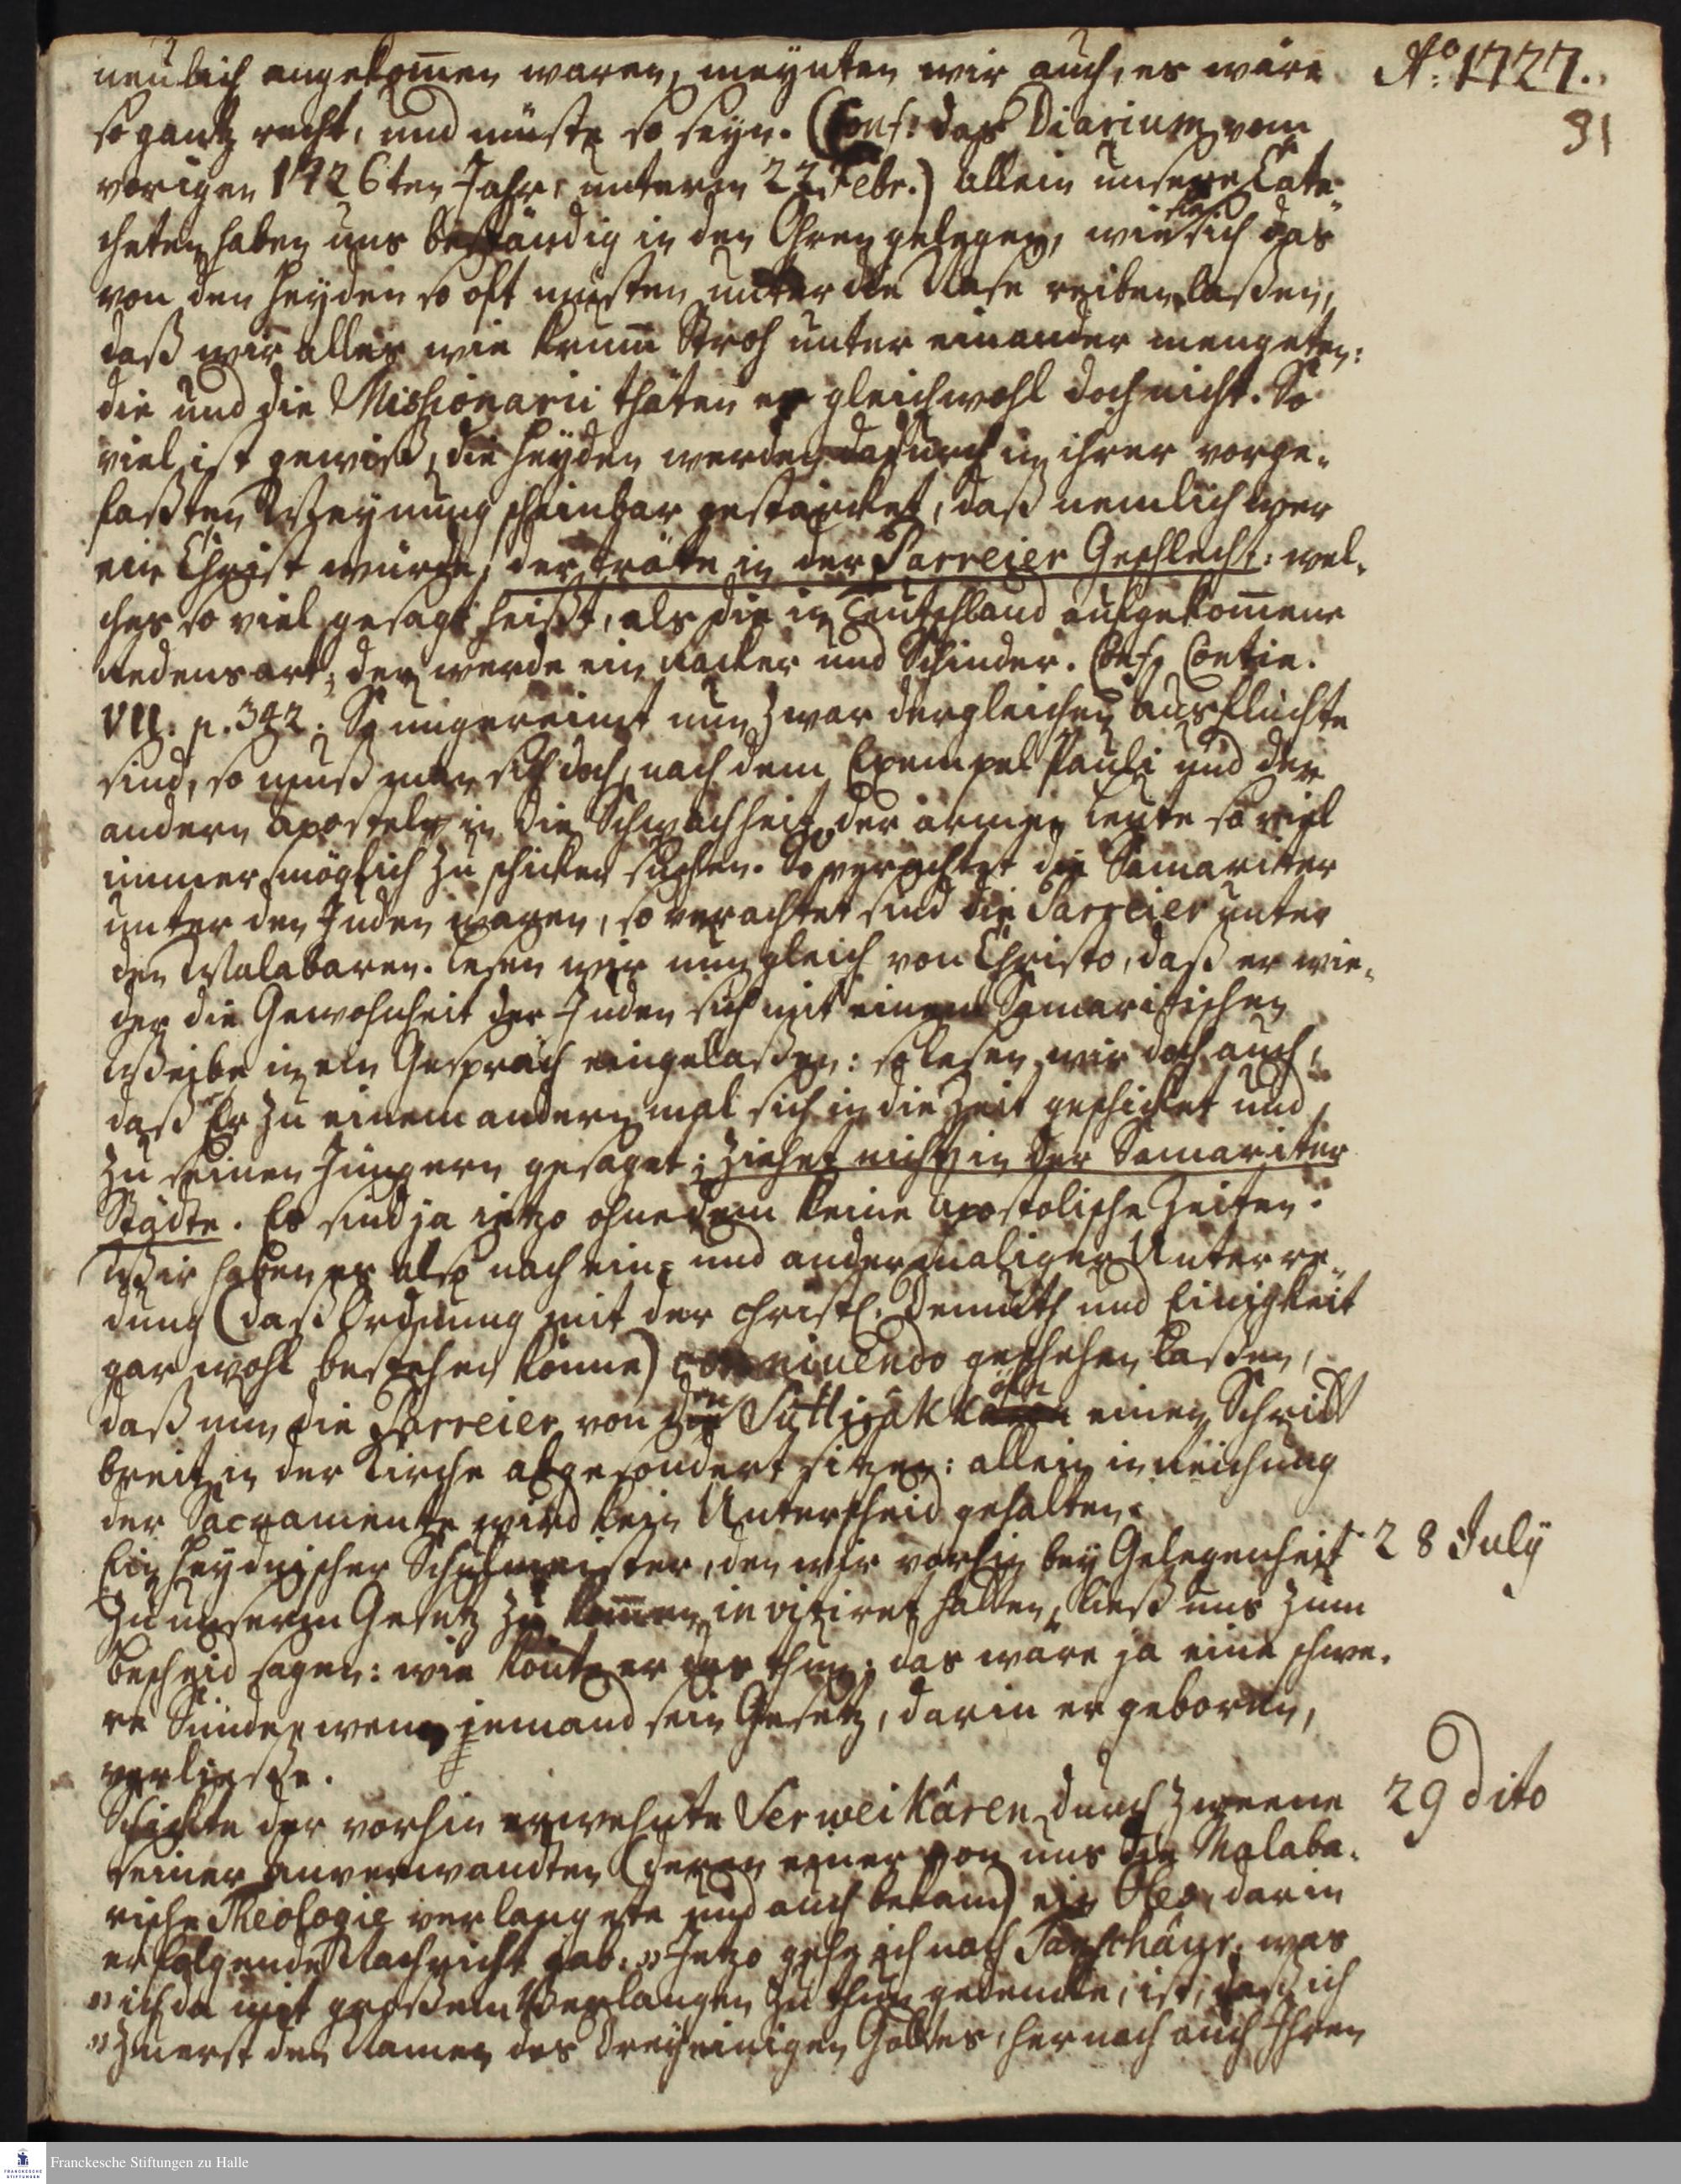 Aō: 1727.
31
neulich angekom̅en waren, meynten wir auch, es wäre
so gantz recht, und müste so seyn. (Conf: das Diarium vom
vorigen 1726ten Jahr, unterm 22. Febr.) allein unsere Cate-
cheten haben uns beständig in den Ohren gelegen, wie sie sich das
von den Heyden so oft müsten unter die Nase reiben laßen,
daß wir alles wie krum̅ Stroh unter einander mengeten:
die und die Missionarii thäten es gleichwohl doch nicht. So
viel ist gewiß, die Heyden werden dadurch in ihrer vorge-
faßten Meynung scheinbar gestärcket, daß nemlich wer
ein Christ würde, der träte in der Parreier Geschlecht: wel-
ches so viel gesagt heißt, als die in Teutschland aufgekom̅ene
Redensart; der werde ein Racker und Schinder. Conf. Contin.
VII. p. 342. So ungereimt nun zwar dergleichen Ausflüchte
sind, so muß man sich doch, nach dem Exempel Pauli und der
andern Aposteln in die Schwachheit der armen Leute so viel
immer möglich zu schicken suchen. So verachtet die Samariter
unter den Juden waren, so verachtet sind die Parreier unter
den Malabaren. Lesen wir nun gleich von Christo, daß er wie-
der die Gewohnheit der Juden sich mit einem Samaritischen
Weibe in ein Gespräch eingelaßen: so lesen wir doch auch,
daß Er zu einem andern mal sich in die Zeit geschicket und
zu seinen Jüngern gesaget; ziehet nicht in der Samariter
Städte. Es sind ja ietzo ohnedem keine Apostolische Zeiten.
Wir haben es also nach ein- und andermaliger Unterre-
dung (daß Ordnung mit der Christl. Demuth und Einigkeit
gar wohl bestehen könne) connivendo geschehen laßen,
daß nun die Parreier von den Suttirâkkâren einen Schritt
breit in der Kirche abgesondert sitzen: allein in Reichung
der Sacramente wird kein Unterscheid gehalten.
28 July
Ein Heydnischer Schulmeister, den wir vorhin bey Gelegenheit
zu unserm Gesetz zu kom̅en invitiret hatten, ließ uns zum
Bescheid sagen: wie könte er das thun; das wäre ja eine schwe-
re Sünde, wenn jemand sein Gesetz, darin er geboren,
verließe.
29 dito
Schickte der vorhin erwehnte Serweikâren durch zweene
seiner Anverwandten (deren einer von uns die Malaba-
rische Theologie verlangete und auch bekam) ein Oles, darin
er folgende Nachricht gab. „Ietzo gehe ich nach Tanschâur, was
„ich da mit großem Verlangen zu thun gedencke, ist, daß ich
„zuerst den Namen des Dreyeinigen Gottes, hernach auch Ihren
Franckesche Stiftungen zu Halle